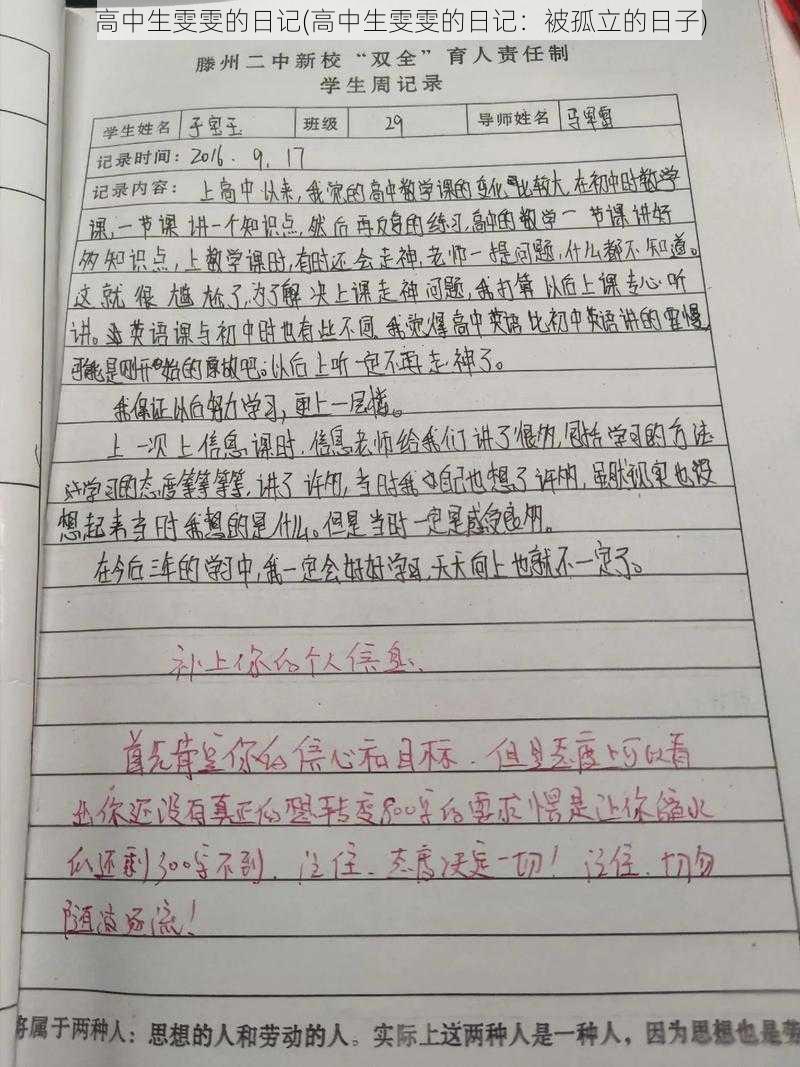 高中生雯雯的日记(高中生雯雯的日记：被孤立的日子)
滕州二中新校“双全”育人责任制
学生周记录
学生姓名 班级 29 导师姓名
记录时间：2016.9.17
记录内容：上高中以来，我觉的高中数学课的变化比较大，在初中时数学
课，一节课讲一个知识点，然后再反复的练习，高中的数学一节课讲好
多知识点，上数学课时，有时还会走神，老师一提问题，什么都不知道。
这就很尴尬了，为了解决上课走神问题，我打算以后上课专心听
讲。英语课与初中时也有些不同，我觉得高中英语比初中英语讲的要慢
可能是刚开始的原故吧。以后上听一定不再走神了。
我保证以后努力学习，更上一层楼。
上一次上信息课时，信息老师给我们讲了很多，包括学习的方法
学习的态度等等等等，讲了许多，当时我自己也想了许多，虽然现实也没
想起来当时我想的是什么。但是当时一定是感受良多。
在今后三年的学习中，我一定会好好学习，天天向上也就不一定了。
补上你的个人信息、
首先肯定你的信心和目标．但是态度上可以看
出你还没有真正的想转变800字的要求愣是让你缩水
的还剩300字不到．注住．态度决定一切！注住．切勿
随波逐流！
将属于两种人：思想的人和劳动的人。实际上这两种人是一种人，因为思想也是劳